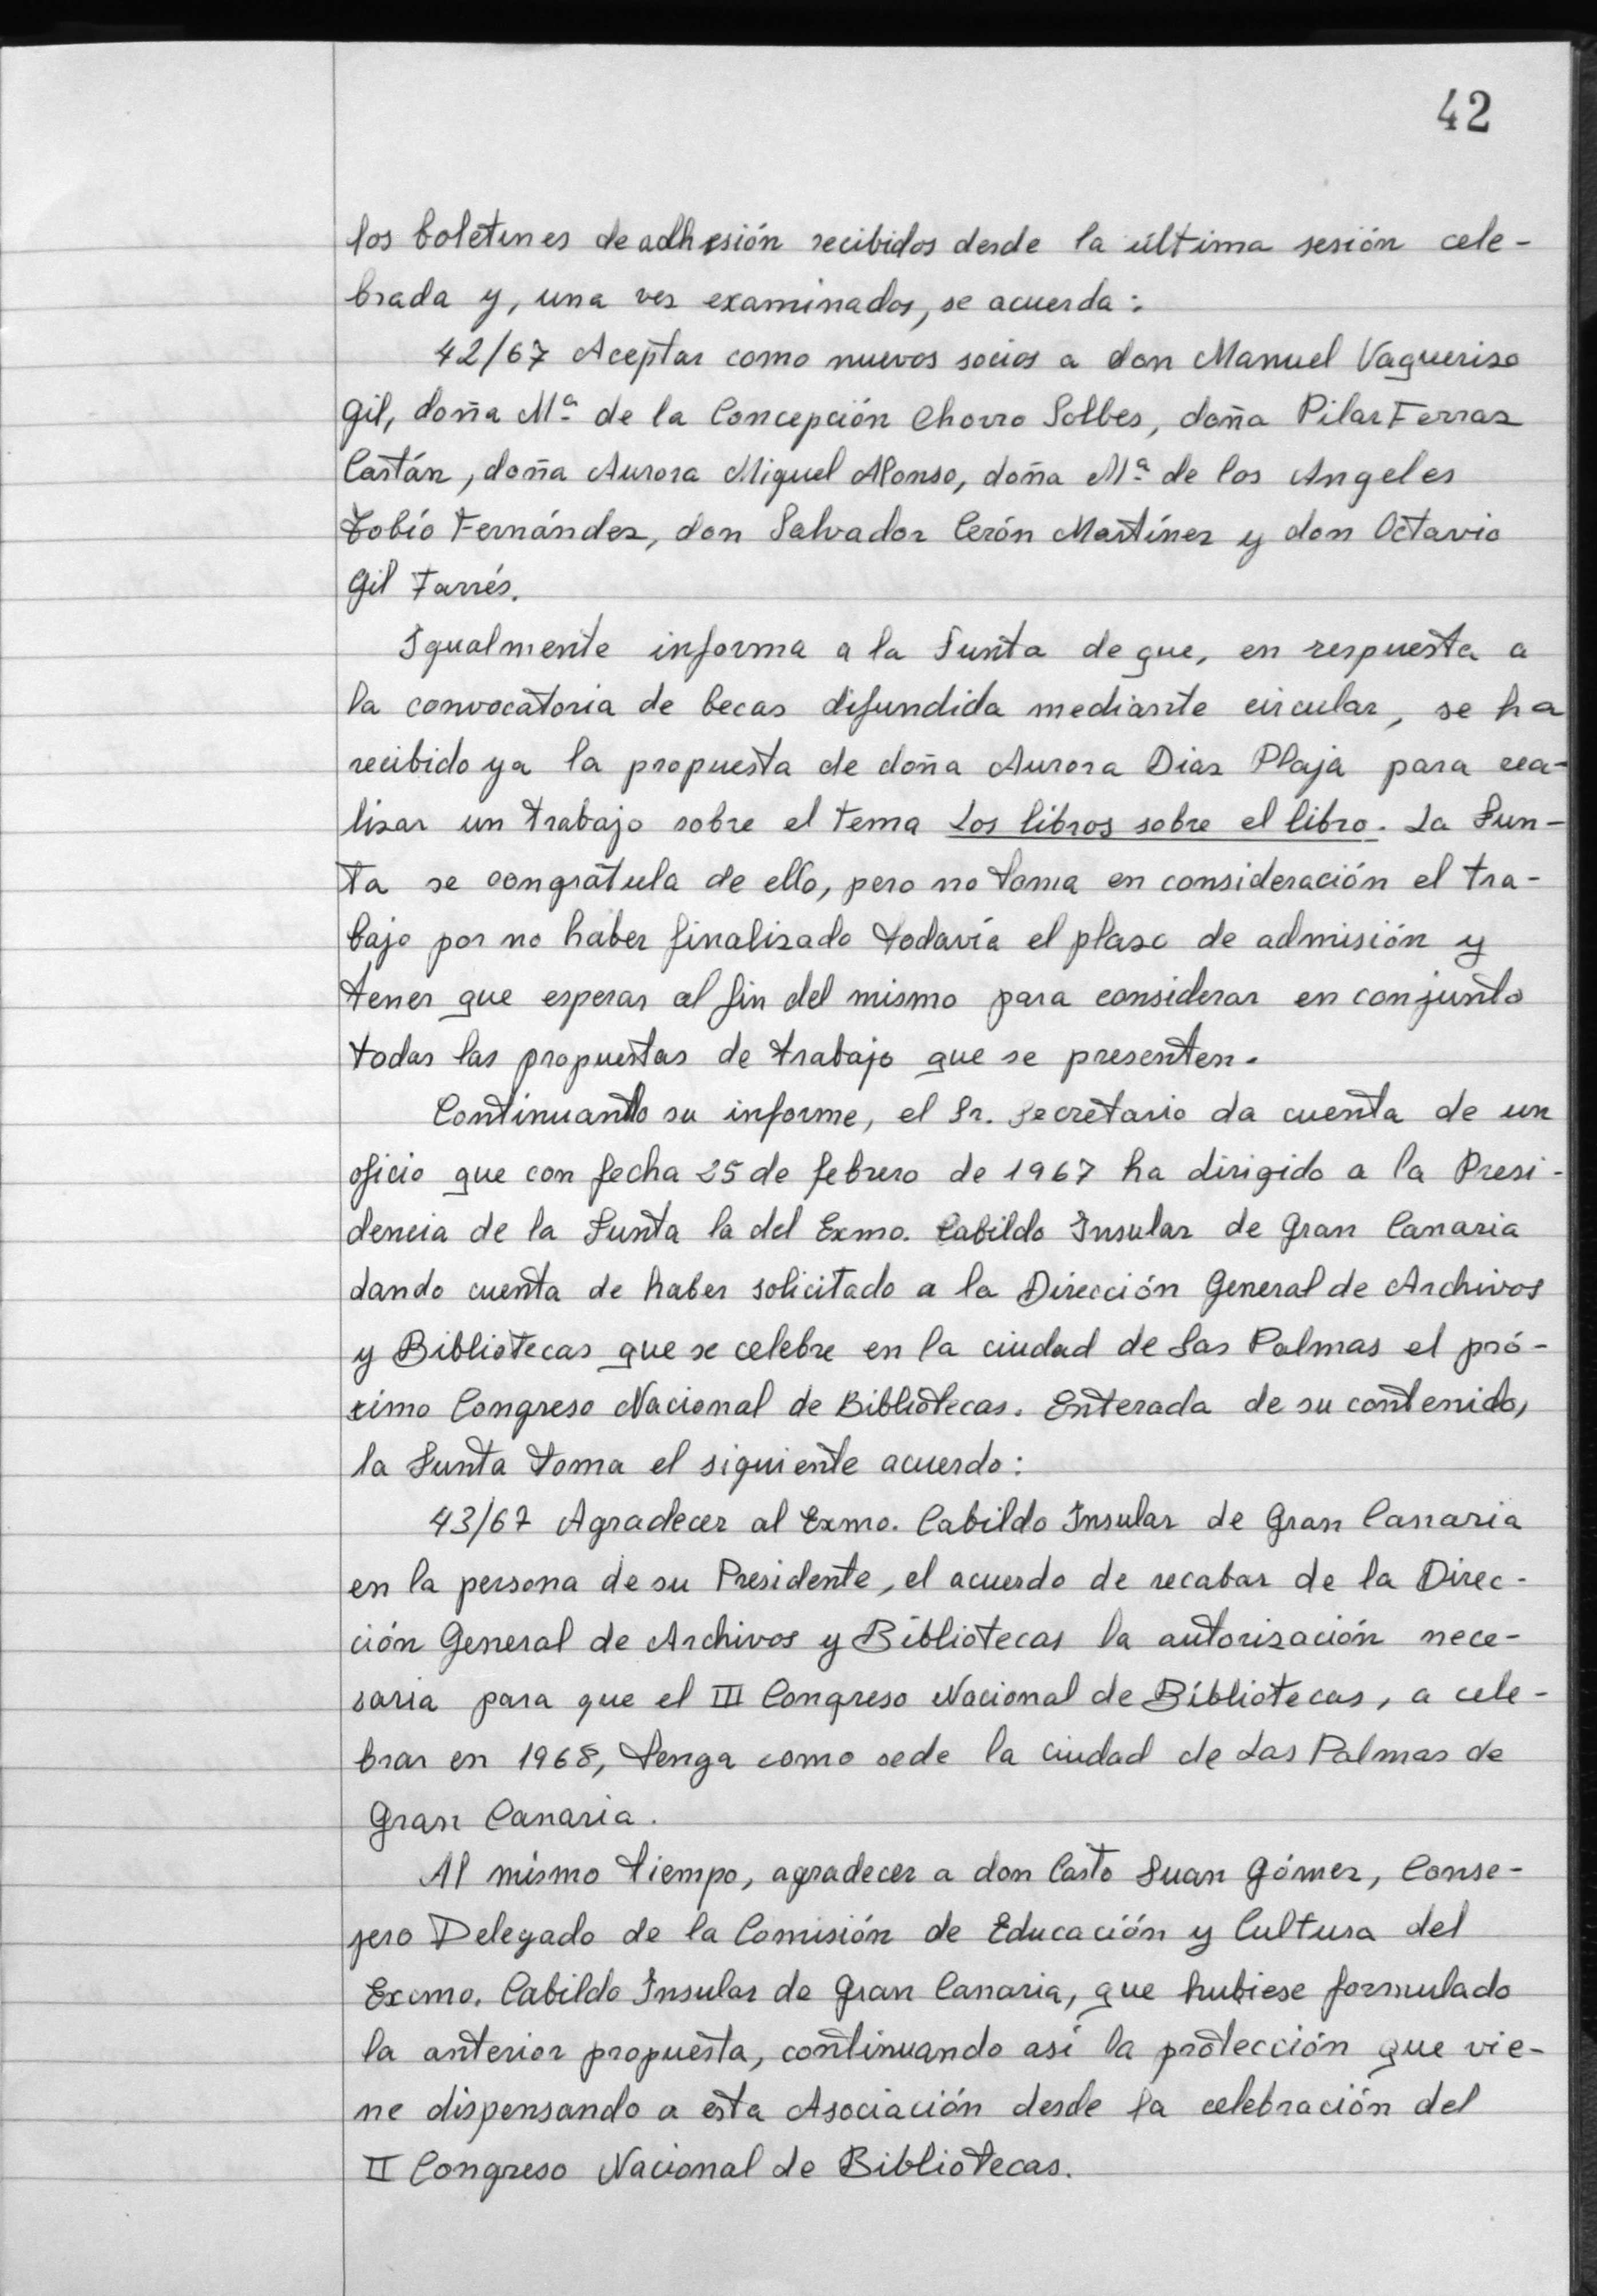 42
los boletines de adhesión recibidos desde la última sesión cele-
brada y, una vez examinados, se acuerda:
42/67 Aceptar como nuevos socios a don Manuel Vaguerizo
Gil, doña Mª de la Concepción Chorro Solbes, doña Pilar Ferraz
Castán, doña Aurora Miguel Alonso, doña Mª de los Angeles
Tobío Fernández, don Salvador Cerón Martínez y don Octavio
Gil Farrés.
Igualmente informa a la Junta de que, en respuesta a
la convocatoria de becas difundida mediante circular, se ha
recibido ya la propuesta de doña Aurora Diaz Plaja para rea-
lizar un trabajo sobre el tema Los libros sobre el libro. La Jun-
ta se congratula de ello, pero no toma en consideración el tra-
bajo por no haber finalizado todavía el plazo de admisión y
tener que esperar al fin del mismo para considerar en conjunto
todas las propuestas de trabajo que se presenten.
Continuando su informe, el Sr. Secretario da cuenta de un
oficio que con fecha 25 de febrero de 1967 ha dirigido a la Presi-
dencia de la Junta la del Exmo. Cabildo Insular de Gran Canaria
dando cuenta de haber solicitado a la Dirección General de Archivos
y Bibliotecas que se celebre en la ciudad de Las Palmas el pró-
ximo Congreso Nacional de Bibliotecas. Enterada de su contenido,
la Junta toma el siguiente acuerdo:
43/67 Agradecer al Exmo. Cabildo Insular de Gran Canaria
en la persona de su Presidente, el acuerdo de recabar de la Direc-
ción General de Archivos y Bibliotecas la autorización nece-
saria para que el III Congreso Nacional de Bibliotecas, a cele-
brar en 1968, tenga como sede la ciudad de Las Palmas de
Gran Canaria.
Al mismo tiempo, agradecer a don Casto Juan Gómez, Conse-
jero Delegado de la Comisión de Educación y Cultura del
Excmo. Cabildo Insular de Gran Canaria, que hubiese formulado
la anterior propuesta, continuando así la protección que vie-
ne dispensando a esta Asociación desde la celebración del
II Congreso Nacional de Bibliotecas.